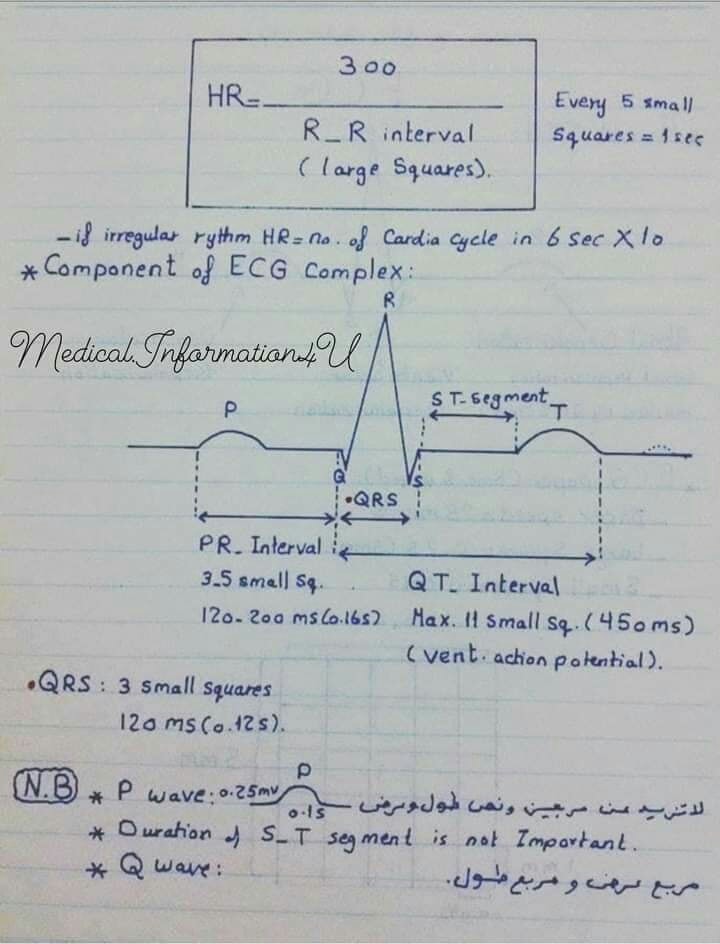 300
HR=
R_R interval
(large Squares).
Every 5 small
Squares = 1sec
- if irregular rythm HR= no. of Cardia cycle in 6 sec X 10
* Component of ECG Complex:
R
Medical.Information4U
ST-segment
P
T
Q
S
•QRS
PR_ Interval
3_5 small Sq.
120-200 ms(0.16s)
QT_ Interval
Max. 11 small Sq. (450ms)
(vent. action potential).
•QRS : 3 small squares
120 ms(0.12s).
N.B
P
* P wave: 0.25mv
0.1s
لا تزيد عن مربعين ونص طول وعرض
* Duration of S_T segment is not Important.
* Q wave:
مربع عرض و مربع طول.